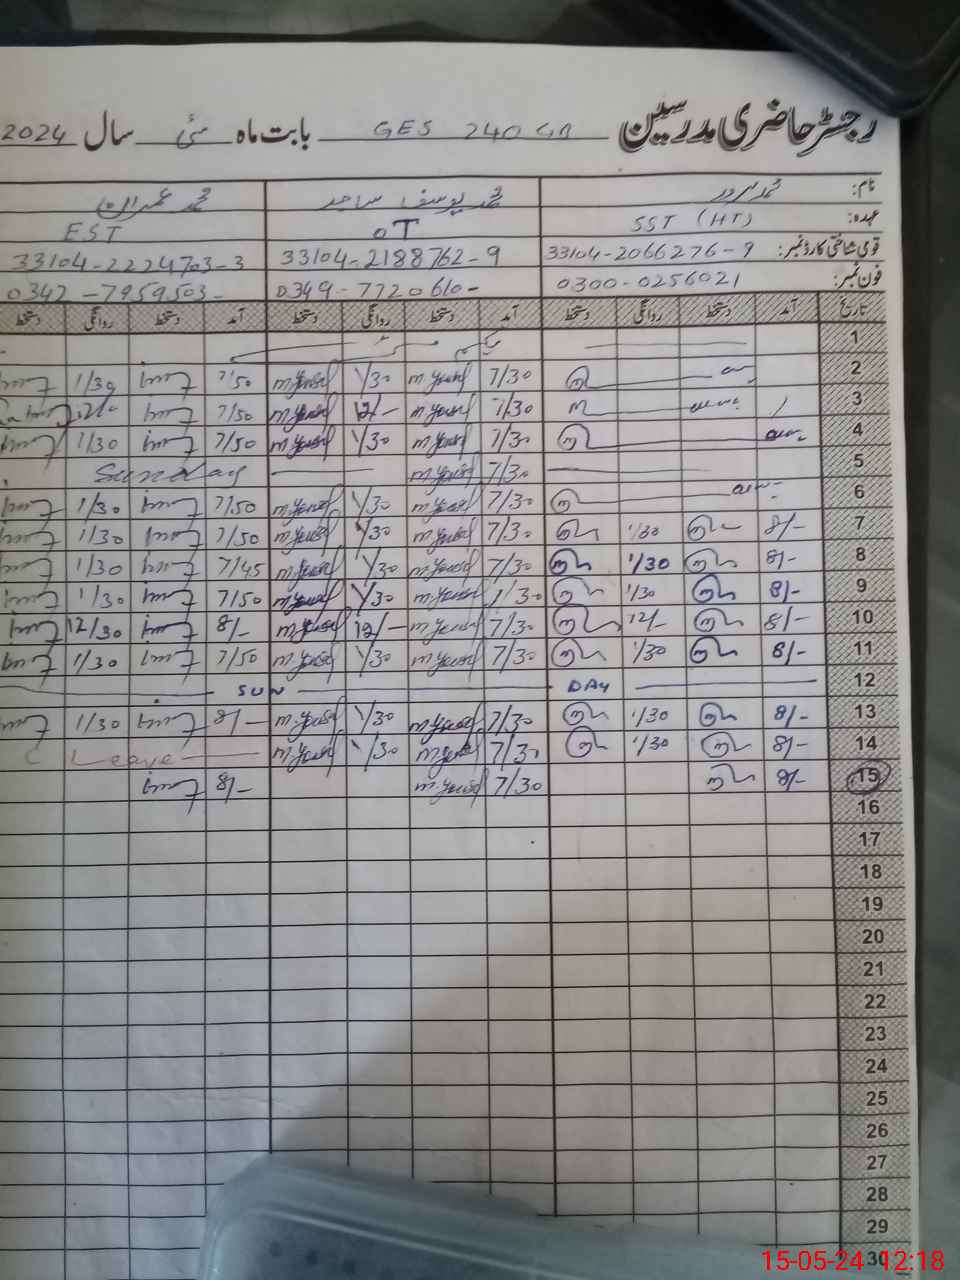 رجسٹر حاضری مدرسین GES 240 GB بابت ماہ مئی سال 2024
نام: محمد سرور محمد یوسف ساجد محمد عمران
عہدہ: SST (HT) OT EST
قومی شناختی کارڈ نمبر: 33104-2066276-9 33104-2188762-9 33104-2224703-3
فون نمبر: 0300-0256021 0349-7720610- 0342-7959503-
تاریخ آمد دستخط روانگی دستخط آمد دستخط روانگی دستخط آمد دستخط روانگی دستخط
1
2 7/30 m.yousaf 1/30 m.yousaf 7/50 1/30
3 7/30 m.yousaf 12/- m.yousaf 7/50 12/-
4 7/30 m.yousaf 1/30 m.yousaf 7/50 1/30
5 7/30 m.yousaf Sunday
6 7/30 m.yousaf 1/30 m.yousaf 7/50 1/30
7 8/- 1/30 7/30 m.yousaf 1/30 m.yousaf 7/50 1/30
8 8/- 1/30 7/30 m.yousaf 1/30 m.yousaf 7/45 1/30
9 8/- 1/30 m.yousaf 1/30 m.yousaf 7/50 1/30
10 8/- 12/- 7/30 m.yousaf 12/- m.yousaf 8/- 12/30
11 8/- 1/30 7/30 m.yousaf 1/30 m.yousaf 7/50 1/30
12 SUN DAY
13 8/- 1/30 7/30 m.yousaf 1/30 m.yousaf 8/- 1/30
14 8/- 1/30 7/30 m.yousaf 1/30 m.yousaf Leave
15 8/- 7/30 m.yousaf 8/-
16
17
18
19
20
21
22
23
24
25
26
27
28
29
30
15-05-24 12:18